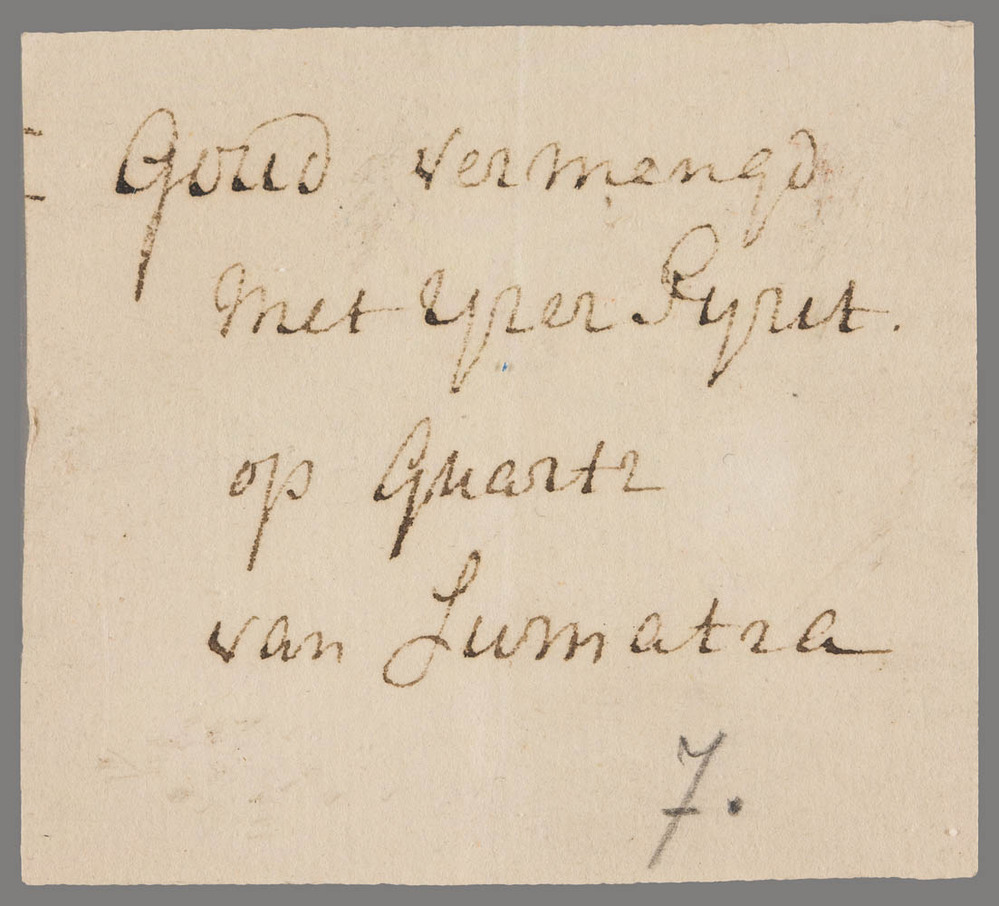 Goud vermengd
met Yzer Pyrit.
op Quartz
van Sumatra
7.